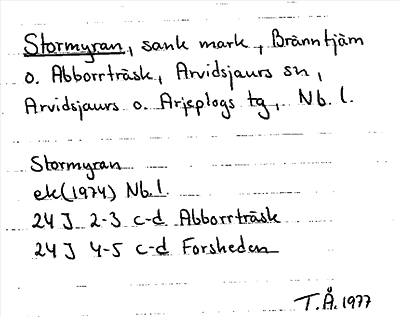 Stormyran, sank mark, Bränntjärn
o. Abborrträsk, Arvidsjaurs sn,
Arvidsjaurs o. Arjeplogs tg, Nb. l.
Stormyran
ek(1974) Nb. l.
24 J 2-3 c-d Abborrträsk
24 J 4-5 c-d Forsheden
T.Å. 1977